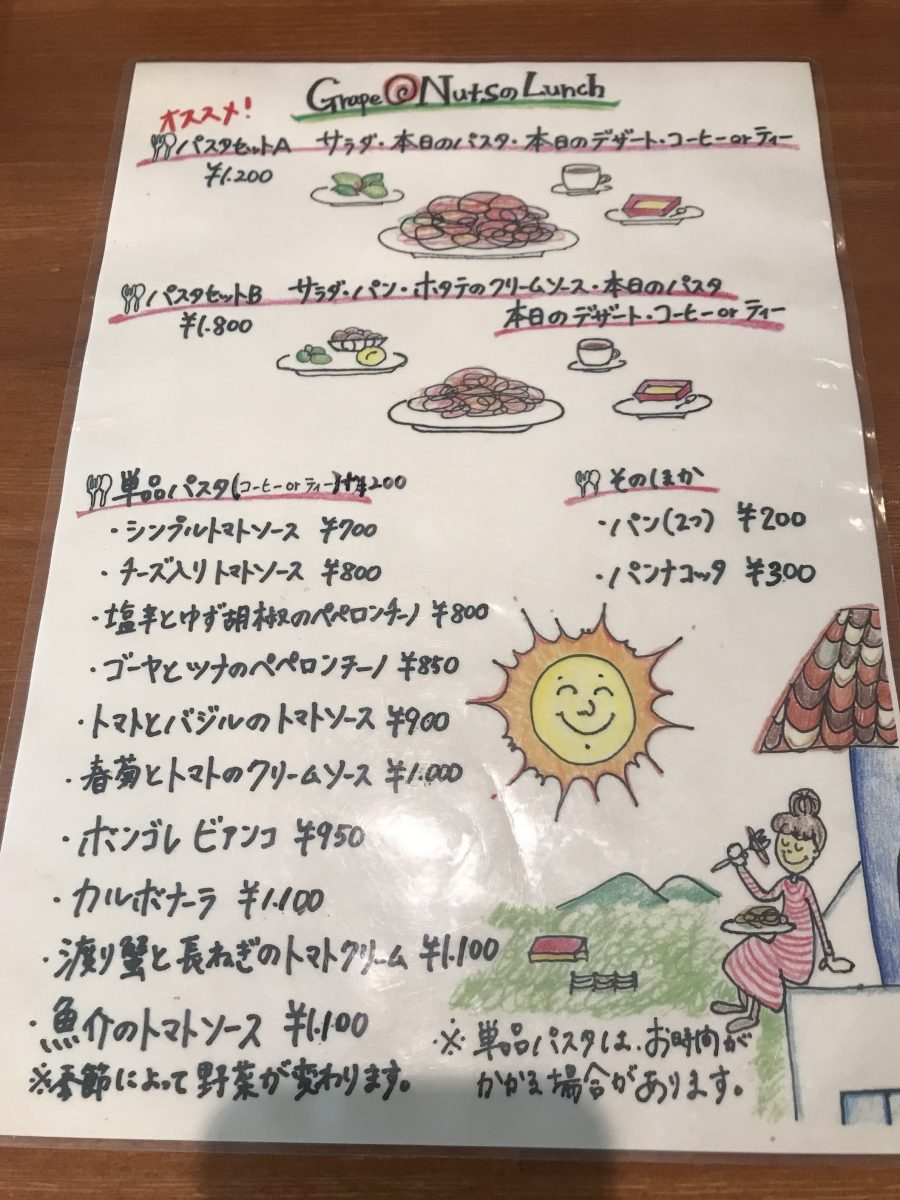 Grape Nutsの Lunch
オススメ!
パスタセットA サラダ・本日のパスタ・本日のデザート・コーヒー or ティー
¥1.200
パスタセットB サラダ・パン・ホタテのクリームソース・本日のパスタ
¥1.800 本日のデザート・コーヒー or ティー
単品パスタ(コーヒー or ティー)付¥200
・シンプルトマトソース ¥700
・チーズ入りトマトソース ¥800
・塩辛とゆず胡椒のペペロンチーノ ¥800
・ゴーヤとツナのペペロンチーノ ¥850
・トマトとバジルのトマトソース ¥900
・春菊とトマトのクリームソース ¥1.000
・ボンゴレ ビアンコ ¥950
・カルボナーラ ¥1.100
・渡り蟹と長ねぎのトマトクリーム ¥1.100
・魚介のトマトソース ¥1.100
※季節によって野菜が変わります。
そのほか
・パン(2つ) ¥200
・パンナコッタ ¥300
※単品パスタは、お時間が
かかる場合があります。